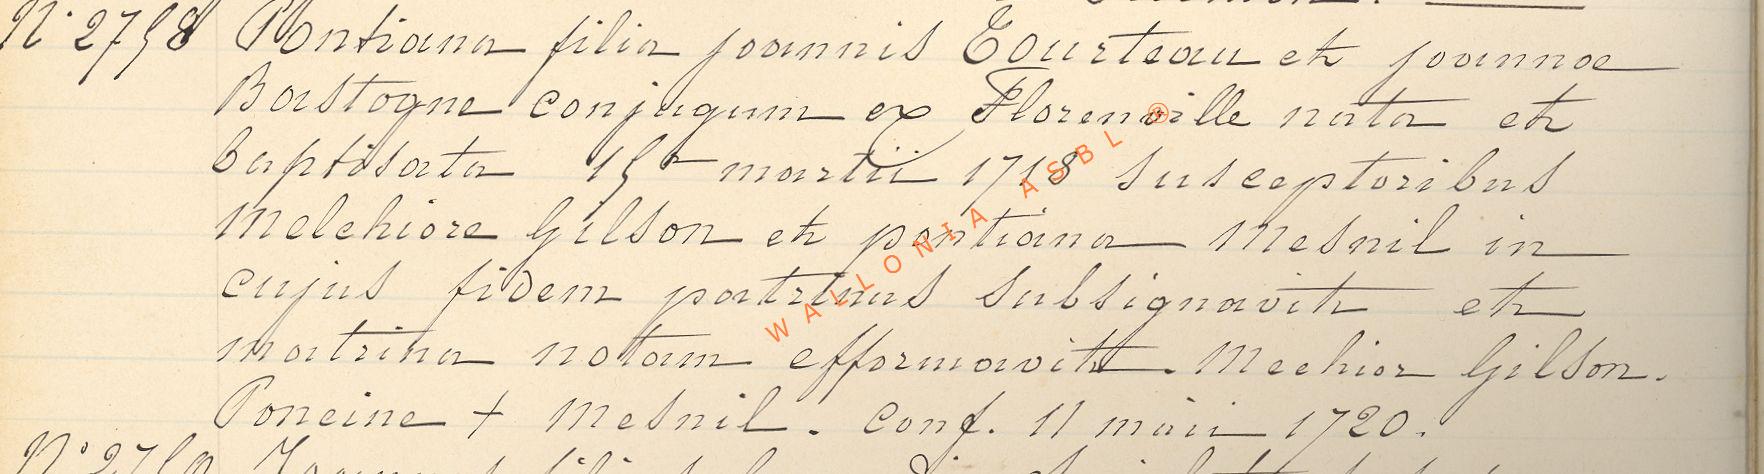 N° 2758 Pontiana filia joannis Tourteau et joannae
Bastogne conjugum ex Florenville nata et
baptisata 15a martii 1718 susceptoribus
Melchiore Gilson et pontiana Mesnil in
cujus fidem patrinus subsignavit et
matrina notam efformavit. Mechior Gilson.
Poncine + Mesnil. conf. 11 maii 1720.
WALLONIA ASBL ®